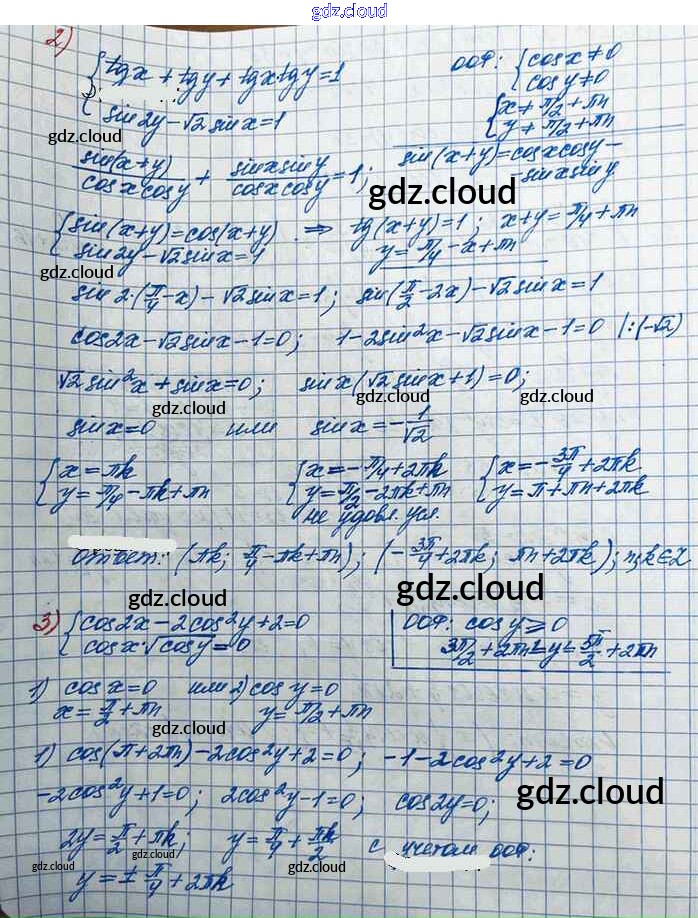 gdz.cloud
2) { tgx + tgy + tgxtgy = 1   ООФ: { cosx ≠ 0
cosy ≠ 0
sin2y − √2 sinx = 1   { x ≠ π/2 + πn
y ≠ π/2 + πn
gdz.cloud
sin(x+y)/cosxcosy + sinxsiny/cosxcosy = 1;   sin(x+y) = cosxcosy −
− sinxsiny.
gdz.cloud
{ sin(x+y) = cos(x+y) ⇒ tg(x+y) = 1; x+y = π/4 + πn
sin2y − √2 sinx = 1   y = π/4 − x + πn
gdz.cloud
sin2·(π/4 − x) − √2 sinx = 1; sin(π/2 − 2x) − √2 sinx = 1
cos2x − √2 sinx − 1 = 0; 1 − 2sin²x − √2 sinx − 1 = 0 |:(−√2)
√2 sin²x + sinx = 0; sinx(√2 sinx + 1) = 0;
gdz.cloud gdz.cloud gdz.cloud
sinx = 0 или sinx = −1/√2
{ x = πk   { x = −π/4 + 2πk   { x = −3π/4 + 2πk
y = π/4 − πk + πn   y = π/2 − 2πk + πn   y = π + πn + 2πk
не удовл. усл.
Ответ: (πk; π/4 − πk + πn); (−3π/4 + 2πk; πn + 2πk); n,k ∈ Z
gdz.cloud gdz.cloud
3) { cos2x − 2cos²y + 2 = 0   ООФ: cosy ≥ 0
cosx·√cosy = 0   3π/2 + 2πn ≤ y ≤ 5π/2 + 2πn
1) cosx = 0 или 2) cosy = 0
x = π/2 + πn   y = π/2 + πn
gdz.cloud
1) cos(π + 2πn) − 2cos²y + 2 = 0; −1 − 2cos²y + 2 = 0
−2cos²y + 1 = 0; 2cos²y − 1 = 0; cos2y = 0;
gdz.cloud
2y = π/2 + πk; y = π/4 + πk/2 с учетом ООФ:
gdz.cloud gdz.cloud gdz.cloud
y = ± π/4 + 2πk